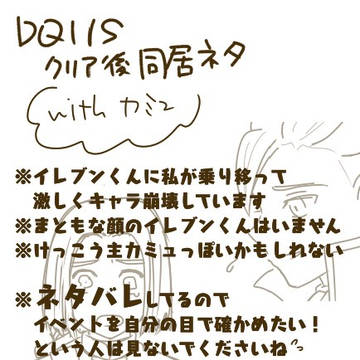 DQ11S
クリア後同居ネタ
with カミュ
※イレブンくんに私が乗り移って
激しくキャラ崩壊しています
※まともな顔のイレブンくんはいません
※けっこう主カミュっぽいかもしれない
※ネタバレしてるので
イベントを自分の目で確かめたい！
という人は見ないでくださいね